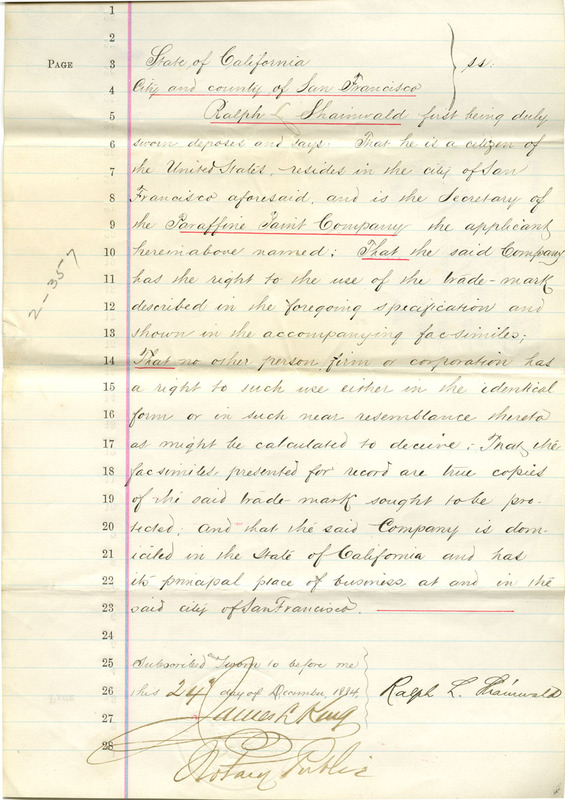 1
2
PAGE 3 State of California } ss:
4 City and county of San Francisco
5 Ralph L Shainwald first being duly
6 sworn deposes and says: That he is a citizen of
7 the United States, resides in the city of San
8 Francisco aforesaid, and is the Secretary of
9 the Paraffine Paint Company the applicant
10 hereinabove named; That the said Company
11 has the right to the use of the trade-mark
12 described in the foregoing specification and
13 shown in the accompanying fac-similes;
14 That no other person, firm or corporation has
15 a right to such use either in the identical
16 form or in such near resemblance thereto
17 as might be calculated to deceive; That the
18 fac similes presented for record are true copies
19 of the said trade-mark sought to be pro-
20 tected; and that the said Company is dom-
21 iciled in the State of California and has
22 its principal place of business, at and in the
23 said city of San Francisco.
24
25 Subscribed and sworn to before me
26 this 24th day of December, 1884, } Ralph L. Shainwald
27 James L. King
28 Notary Public
2-357